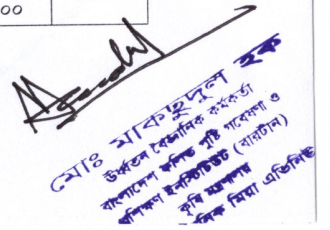 00
মোঃ মাকছুদুল হক
উর্ধ্বতন বৈজ্ঞানিক কর্মকর্তা
বাংলাদেশ ফলিত পুষ্টি গবেষণা ও
প্রশিক্ষণ ইনস্টিটিউট (বারটান)
কৃষি মন্ত্রণালয়
মিয়া এভিনিউ